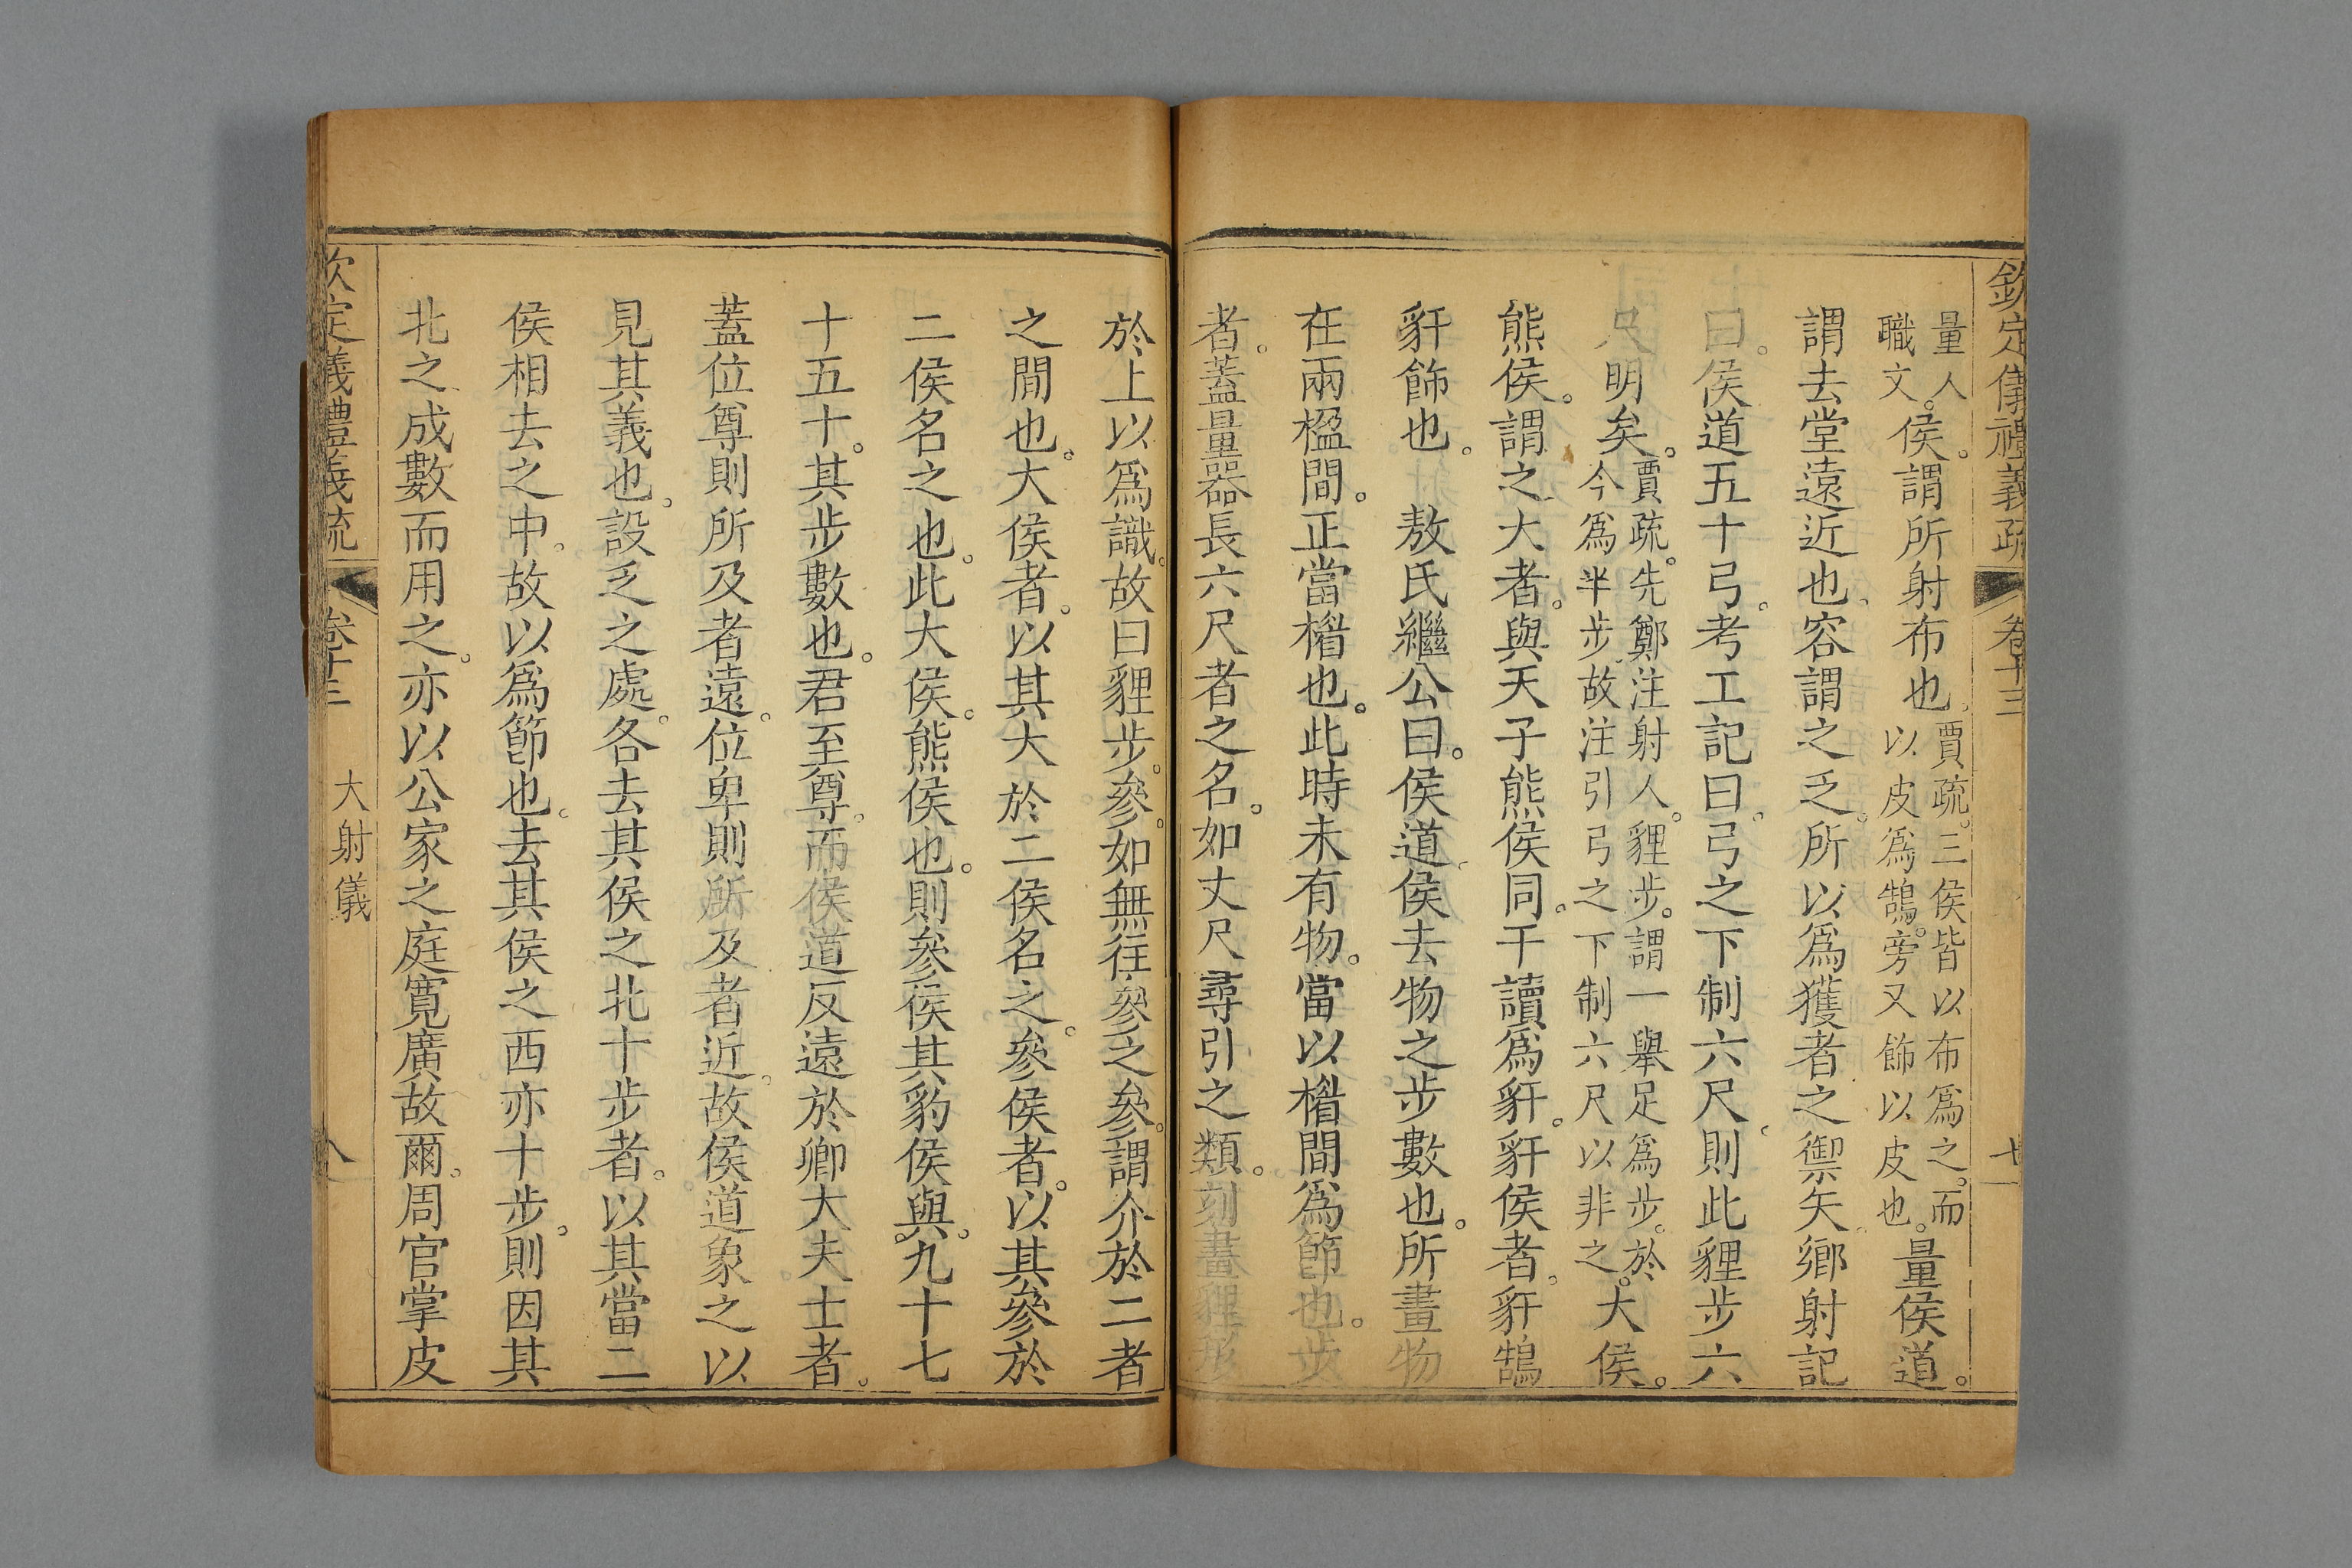 欽定儀禮義疏 卷十三 七
量人職文。侯。謂所射布也。賈疏。三侯皆以布爲之。而以皮爲鵠。旁又飾以皮也。量侯道。
謂去堂遠近也。容謂之乏。所以爲獲者之禦矢。鄉射記
曰。侯道五十弓。考工記曰。弓之下制六尺。則此貍步六
尺明矣。賈疏。先鄭注射人。貍步。謂一舉足爲步。於今爲半步。故注引弓之下制六尺以非之。大侯。
熊侯。謂之大者。與天子熊侯同。干讀爲豻。豻侯者。豻鵠
豻飾也。 敖氏繼公曰。侯道。侯去物之步數也。所畫物
在兩楹間。正當楷也。此時未有物。當以楷間爲節也。步
者。蓋量器長六尺者之名。如丈尺尋引之類。刻畫貍形
於上以爲識。故曰貍步。參。如無往參之參。謂介於二者
之間也。大侯者。以其大於二侯名之。參侯者。以其參於
二侯名之也。此大侯。熊侯也。則參侯其豹侯與。九十七
十五十。其步數也。君至尊。而侯道反遠於卿大夫士者。
蓋位尊則所及者遠。位卑則所及者近。故侯道象之以
見其義也。設乏之處。各去其侯之北十步者。以其當二
侯相去之中。故以爲節也。去其侯之西亦十步。則因其
北之成數而用之。亦以公家之庭寬廣故爾。周官掌皮
欽定儀禮義疏 卷十三 大射儀 八